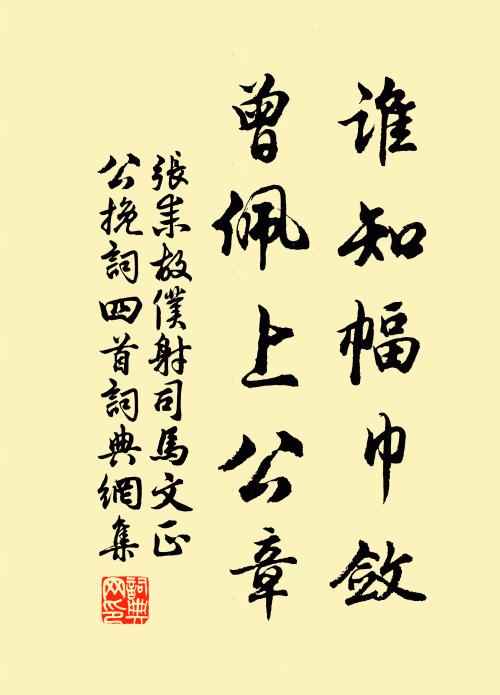 谁知幅巾敛
曾佩上公章
張耒故僕射司馬文正
公挽詞四首詞典網集
詞典网印